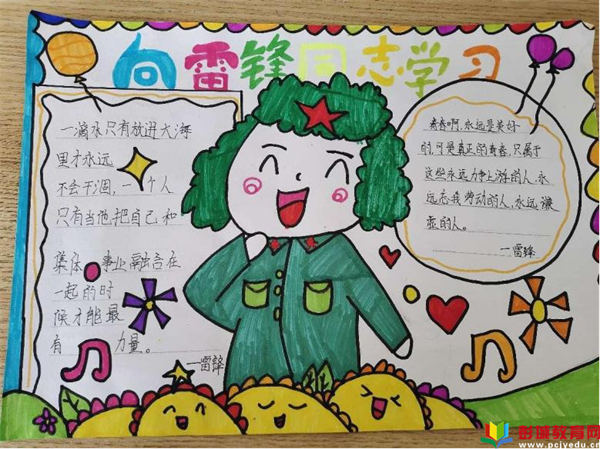 向雷锋同志学习
一滴水只有放进大海
里才永远
不会干涸，一个人
只有当他把自己和
集体事业融合在
一起的时
候才能最
有力量。
—雷锋
青春啊，永远是美好
的，可是真正的青春，只属于
这些永远力争上游的人，永
远忘我劳动的人，永远谦
虚的人。
—雷锋
彭城教育网
www.pcjyedu.cn